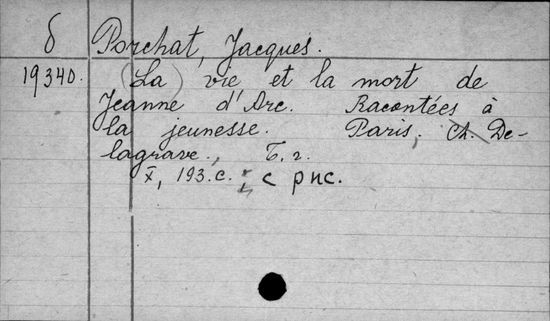 δ Porchat, Jacques.
19340. (La) vie et la mort de
Jeanne d'Arc. Racontées à
la jeunesse. Paris, Ch. De-
lagrave., T. 2.
X, 193.c.; с рис.